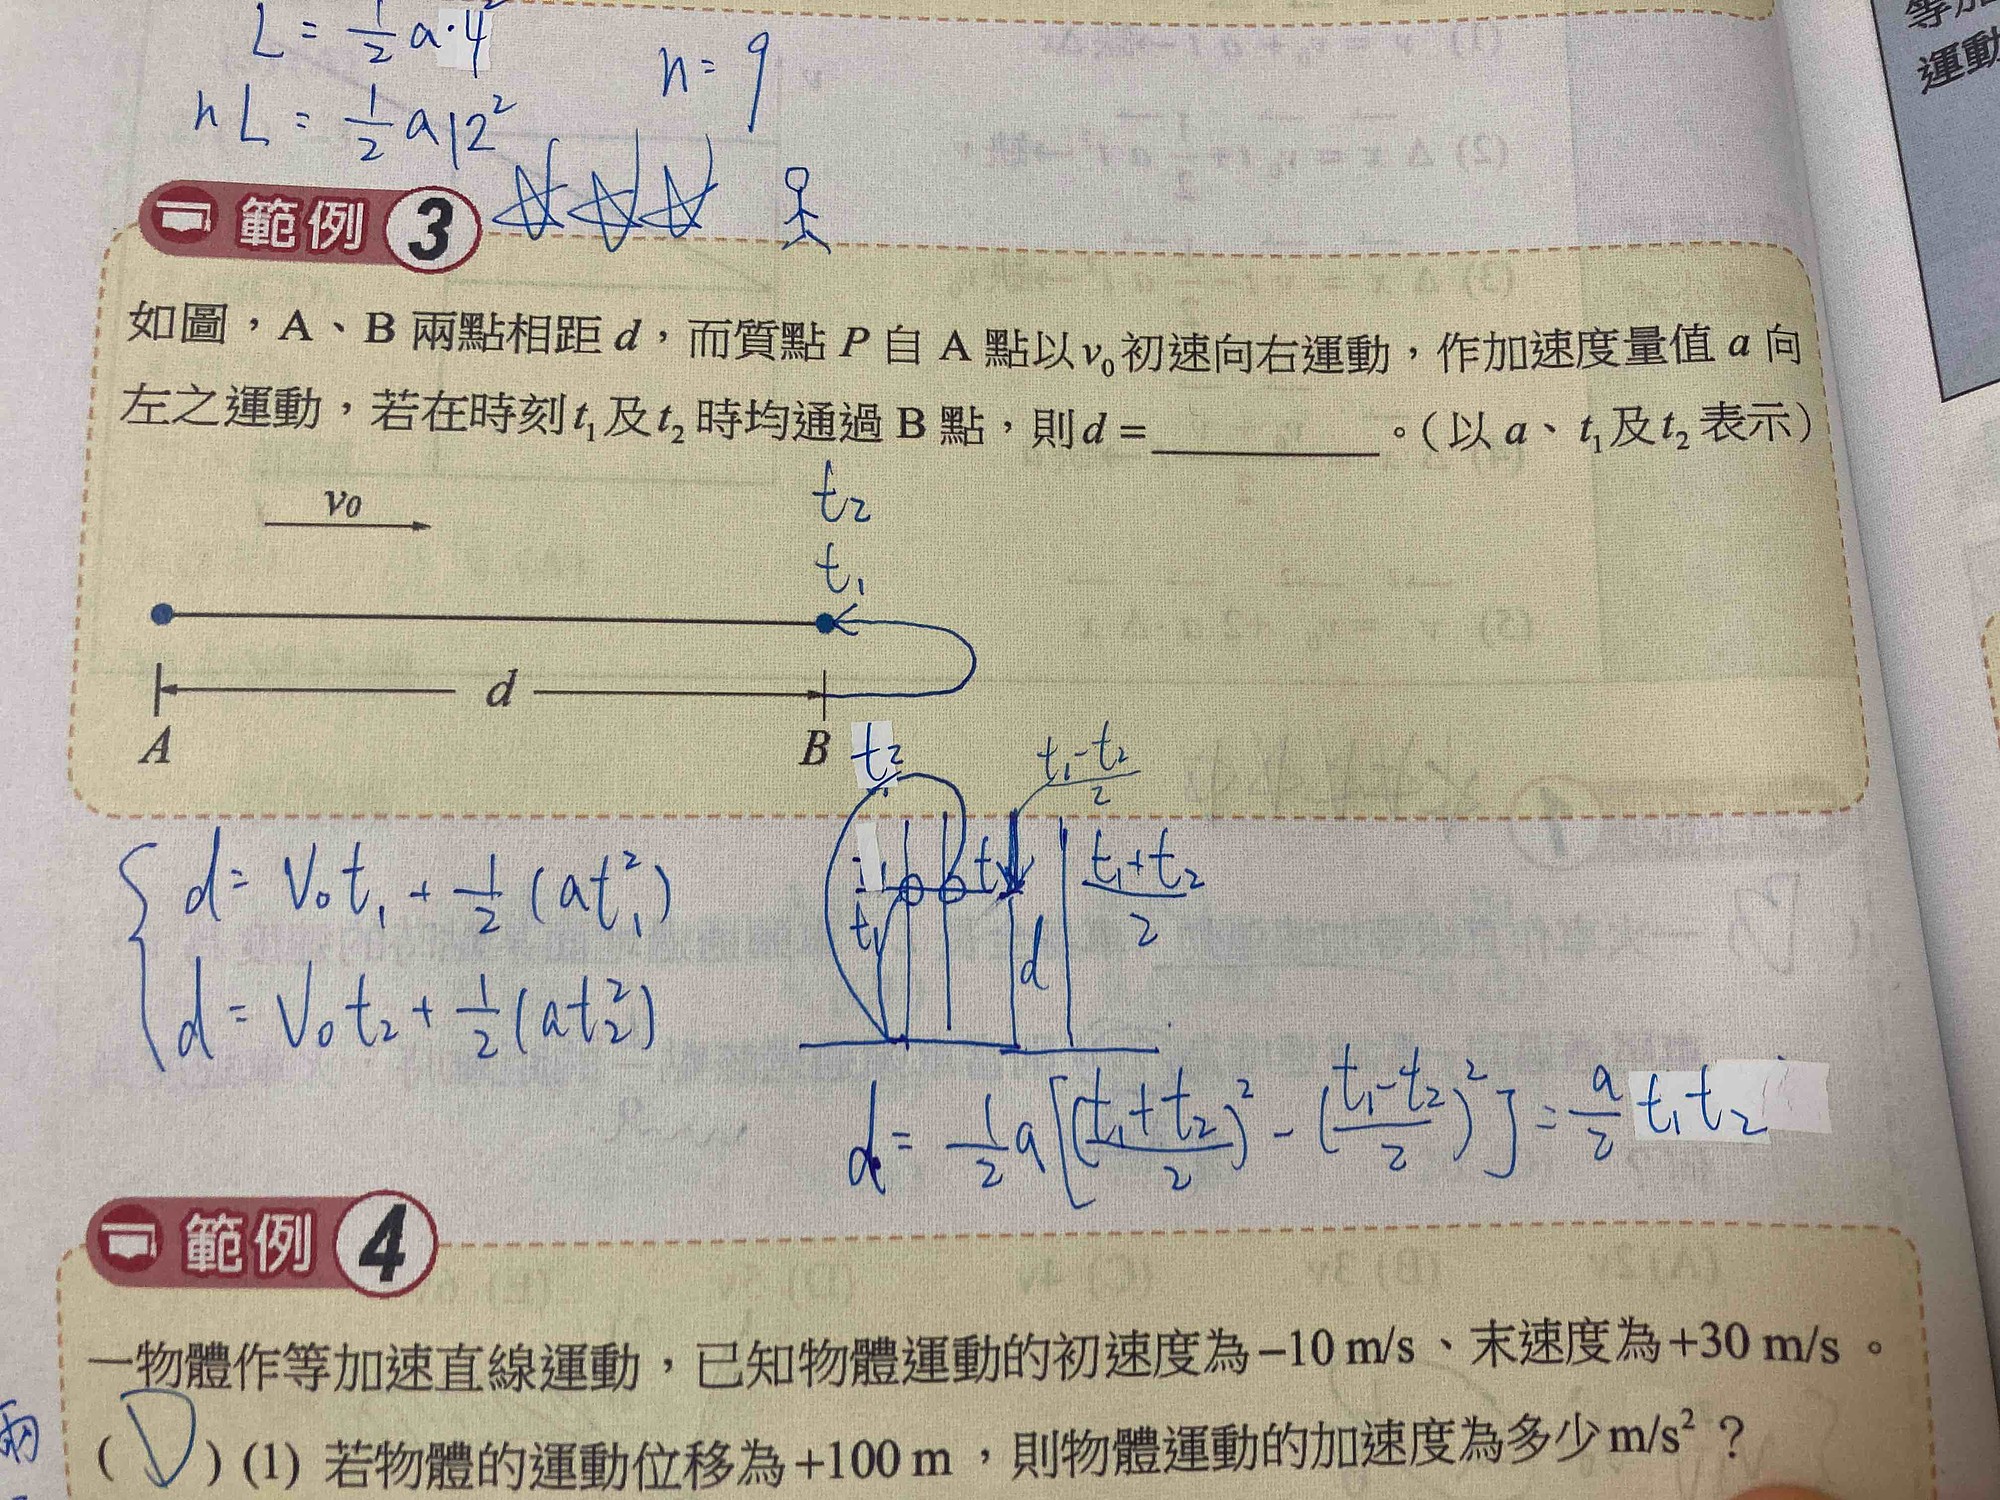 L = 1/2 a·4²
n = 9
nL = 1/2 a12²
範例 3
如圖，A、B 兩點相距 d，而質點 P 自 A 點以 v₀ 初速向右運動，作加速度量值 a 向
左之運動，若在時刻 t₁ 及 t₂ 時均通過 B 點，則 d = ________。（以 a、t₁ 及 t₂ 表示）
v₀
t₂
t₁
d
A
B
t₂
(t₁-t₂)/2
t₁
(t₁+t₂)/2
d
d = V₀t₁ + 1/2 (at₁²)
d = V₀t₂ + 1/2 (at₂²)
d = 1/2 a[((t₁+t₂)/2)² - ((t₁-t₂)/2)²] = a/2 t₁t₂
範例 4
一物體作等加速直線運動，已知物體運動的初速度為 −10 m/s、末速度為 +30 m/s。
( D ) (1) 若物體的運動位移為 +100 m，則物體運動的加速度為多少 m/s²？
等加
運動